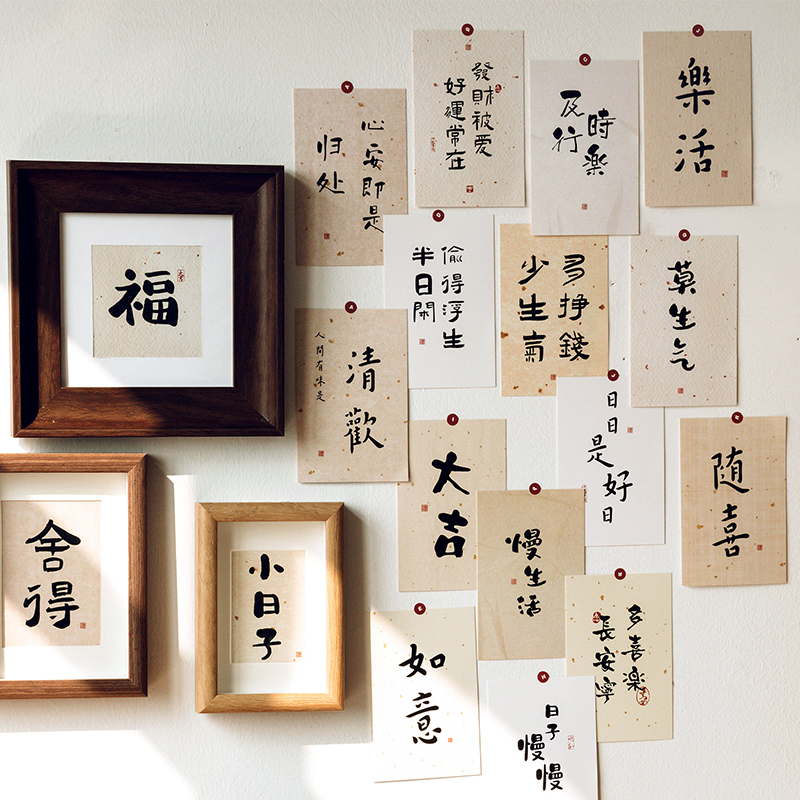 福
舍得
小日子
心安即是
归处
發財被愛
好運常在
時樂
及行
樂
活
偷得浮生
半日閑
多掙錢
少生氣
莫生气
人間有味是
清歡
大吉
日日
是好日
随喜
慢生活
多喜楽
長安寧
如意
日子
慢慢